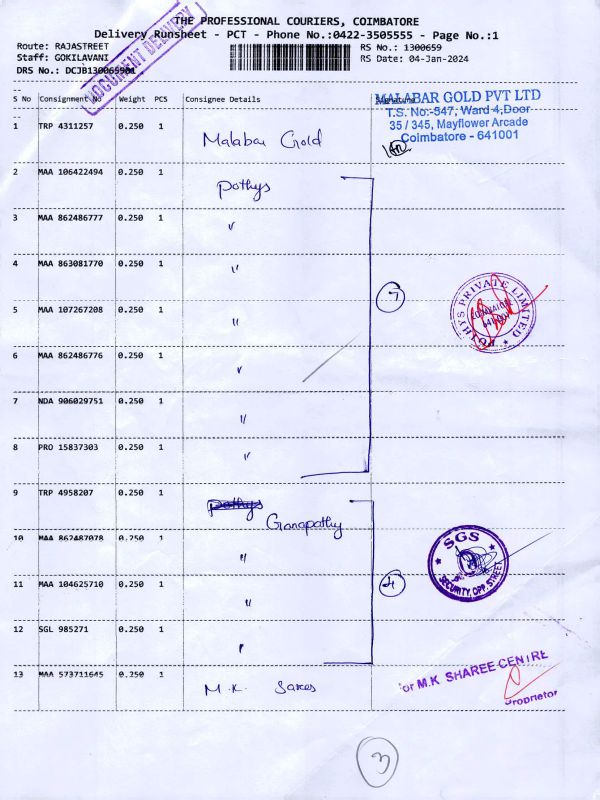 THE PROFESSIONAL COURIERS, COIMBATORE
Delivery Runsheet - PCT - Phone No.:0422-3505555 - Page No.:1
Route: RAJASTREET
RS No.: 1300659
Staff: GOKILAVANI
RS Date: 04-Jan-2024
DRS No.: DCJB130065901
DOCUMENT DELIVERY
S No Consignment No Weight PCS Consignee Details Signature
MALABAR GOLD PVT LTD
T.S. No:-547, Ward 4,Door
35 / 345, Mayflower Arcade
Coimbatore - 641001
1 TRP 4311257 0.250 1 Malabar Gold
2 MAA 106422494 0.250 1 Pothys
3 MAA 862486777 0.250 1 "
4 MAA 863081770 0.250 1 "
5 MAA 107267208 0.250 1 "
7
POTHYS PRIVATE LIMITED
COIMBATORE
641001
6 MAA 862486776 0.250 1 "
7 NDA 906029751 0.250 1 "
8 PRO 15837303 0.250 1 "
9 TRP 4958207 0.250 1 Pothys
Ganapathy
10 MAA 862487078 0.250 1 "
SGS
SECURITY, OPP. STREET
11 MAA 104625710 0.250 1 "
4
12 SGL 985271 0.250 1 "
13 MAA 573711645 0.250 1 M.K. Sarees
for M.K. SHAREE CENTRE
Proprietor
3